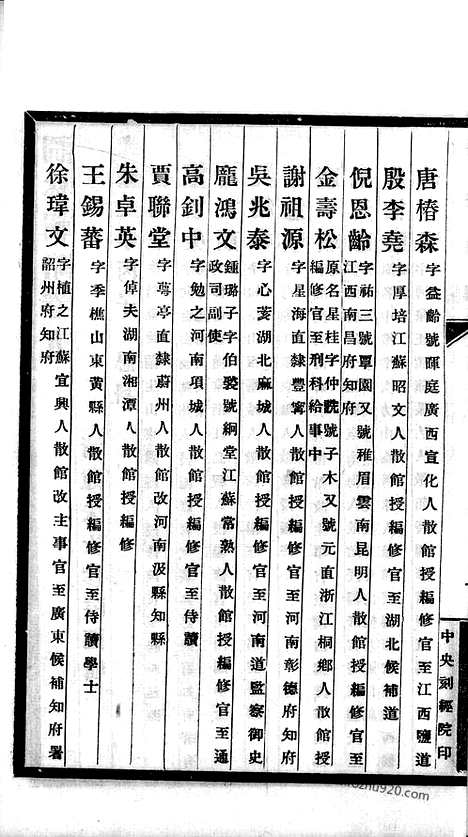 唐椿森 字益齡號暉庭廣西宣化人散館授編修官至江西鹽道
殷李堯 字厚培江蘇昭文人散館授編修官至湖北候補道
倪恩齡 字祐三號覃園又號稚眉雲南昆明人散館授編修官至
江西南昌府知府
金壽松 原名星桂字仲號子木又號元直浙江桐鄉人散館授
編修官至刑科給事中
謝祖源 字星海直隸豐寧人散館授編修官至河南彰德府知府
吳兆泰 字心荄湖北麻城人散館授編修官至河南道監察御史
龐鴻文 鍾璐子字伯號絅堂江蘇常熟人散館授編修官至通
政司副使
高釗中 字勉之河南項城人散館授編修官至侍讀
賈聯堂 字亭直隸蔚州人散館改河南汲縣知縣
朱卓英 字倬夫湖南湘潭人散館授編修
王錫蕃 字季樵山東黃縣人散館授編修官至侍讀學士
徐瑋文 字植之江蘇宜興人散館改主事官至廣東候補知府署
韶州府知府
中央刻經院印